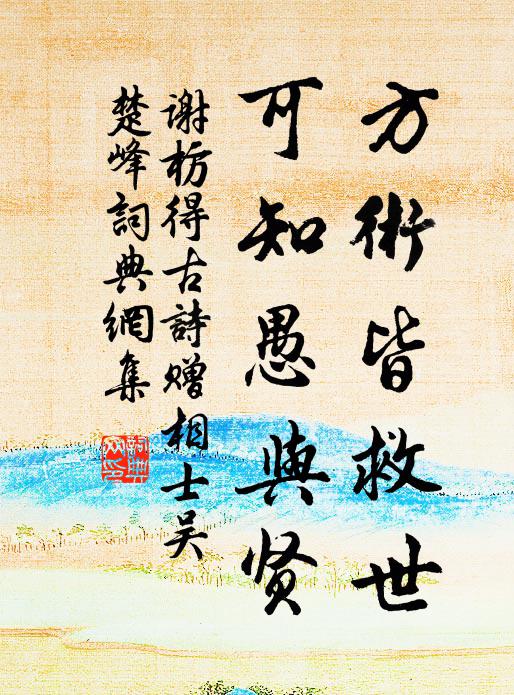 方術皆救世
可知愚與贤
谢枋得古詩赠相士吴
楚峰詞典網集